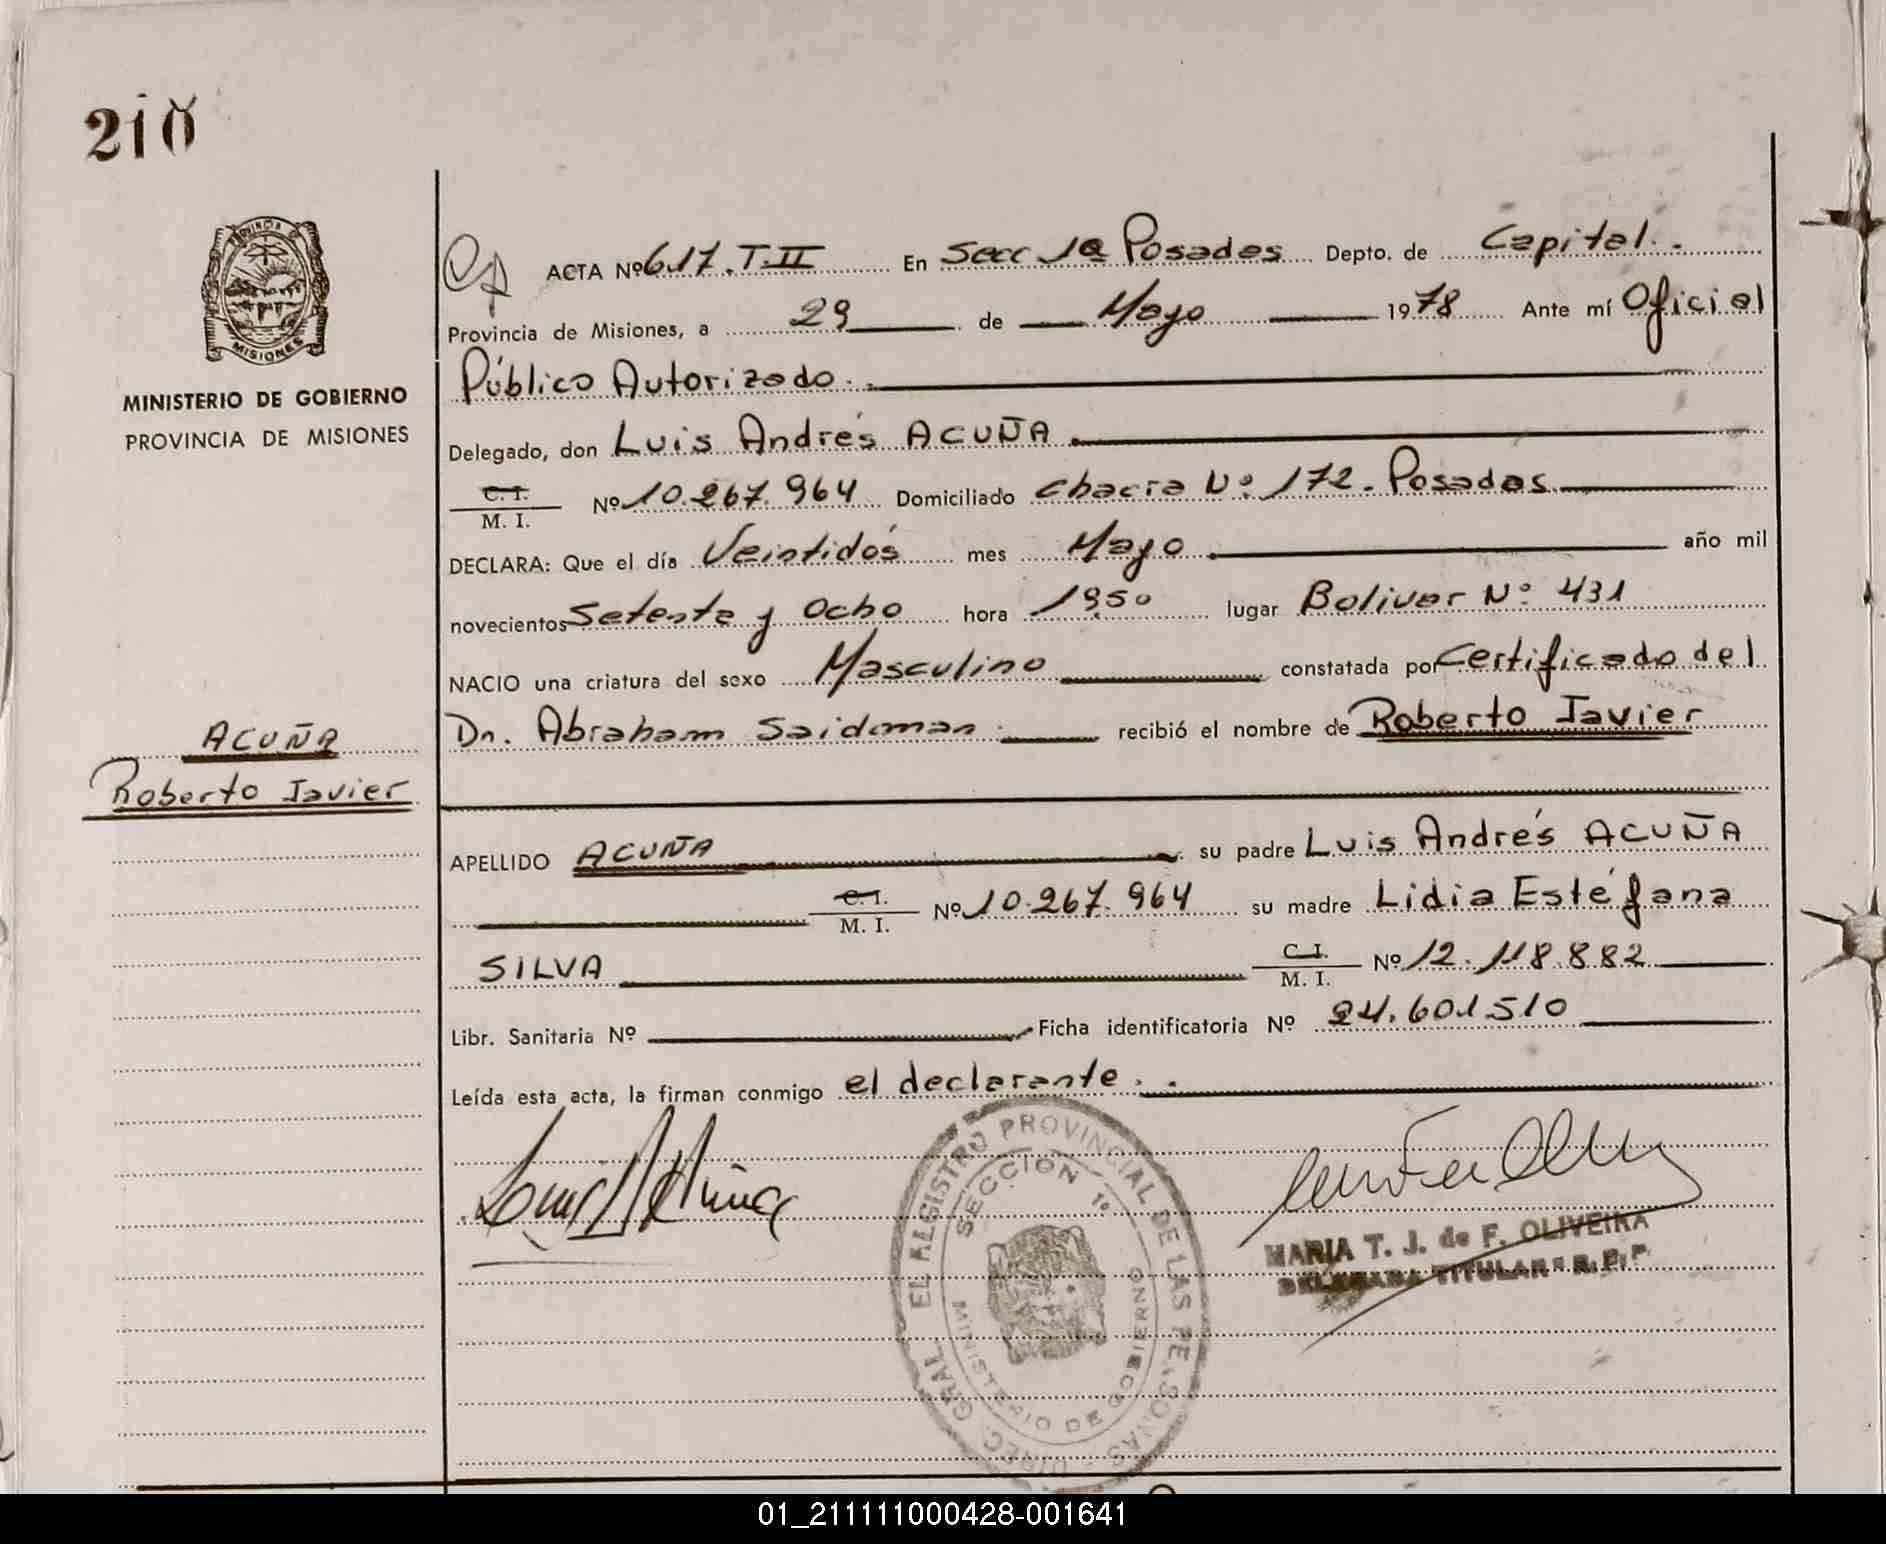 210
PROVINCIA D
MISIONES
MINISTERIO DE GOBIERNO
PROVINCIA DE MISIONES
ACTA Nº 617.T.II En Secc 1ª Posadas Depto. de Capital.
Provincia de Misiones, a 29 de Mayo 1978 Ante mí Oficial
Público Autorizado.
Delegado, don Luis Andrés ACUÑA
C. I.
M. I. Nº 10.267.964 Domiciliado Chacra Nº 172. Posadas
DECLARA: Que el día Veintidós mes Mayo año mil
novecientos Setenta y Ocho hora 1950 lugar Bolivar Nº 431
NACIO una criatura del sexo Masculino constatada por Certificado del
Dr. Abraham Saidman recibió el nombre de Roberto Javier
ACUÑA
Roberto Javier
APELLIDO ACUÑA su padre Luis Andrés ACUÑA
C. I.
M. I. Nº 10.267.964 su madre Lidia Estéfana
SILVA C. I.
M. I. Nº 12.118.882
Libr. Sanitaria Nº Ficha identificatoria Nº 24.601.510
Leída esta acta, la firman conmigo el declarante.
DIREC. GRAL. EL REGISTRO PROVINCIAL DE LAS PERSONAS
SECCION 1º
MINISTERIO DE GOBIERNO
MARIA T. J. de F. OLIVEIRA
DELEGADA TITULAR R. P. P.
01_211111000428-001641